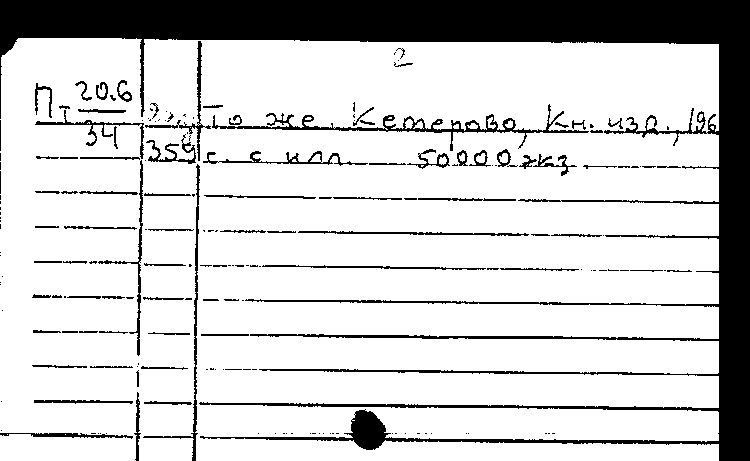 2
Пт 20.6
34
То же. Кемерово, Кн. изд., 196
359 с. с илл. 50000 экз.